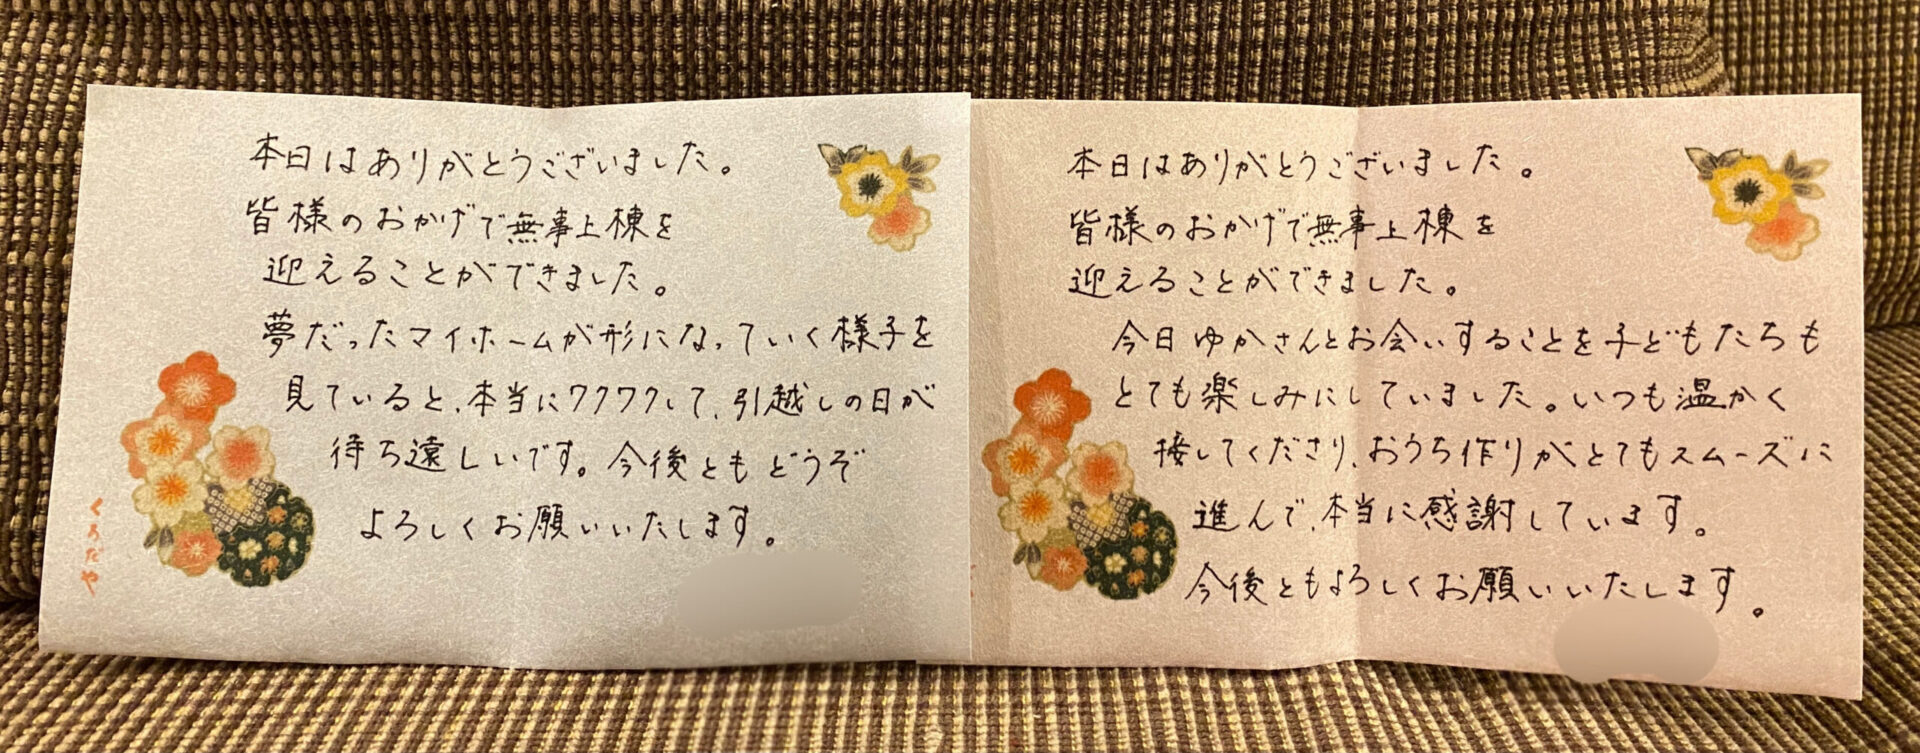 本日はありがとうございました。
皆様のおかげで無事上棟を
迎えることができました。
夢だったマイホームが形になっていく様子を
見ていると、本当にワクワクして、引越しの日が
待ち遠しいです。今後ともどうぞ
よろしくお願いいたします。
くろだや
本日はありがとうございました。
皆様のおかげで無事上棟を
迎えることができました。
今日ゆかさんとお会いすることを子どもたちも
とても楽しみにしていました。いつも温かく
接してくださり、おうち作りがとてもスムーズに
進んで、本当に感謝しています。
今後ともよろしくお願いいたします。